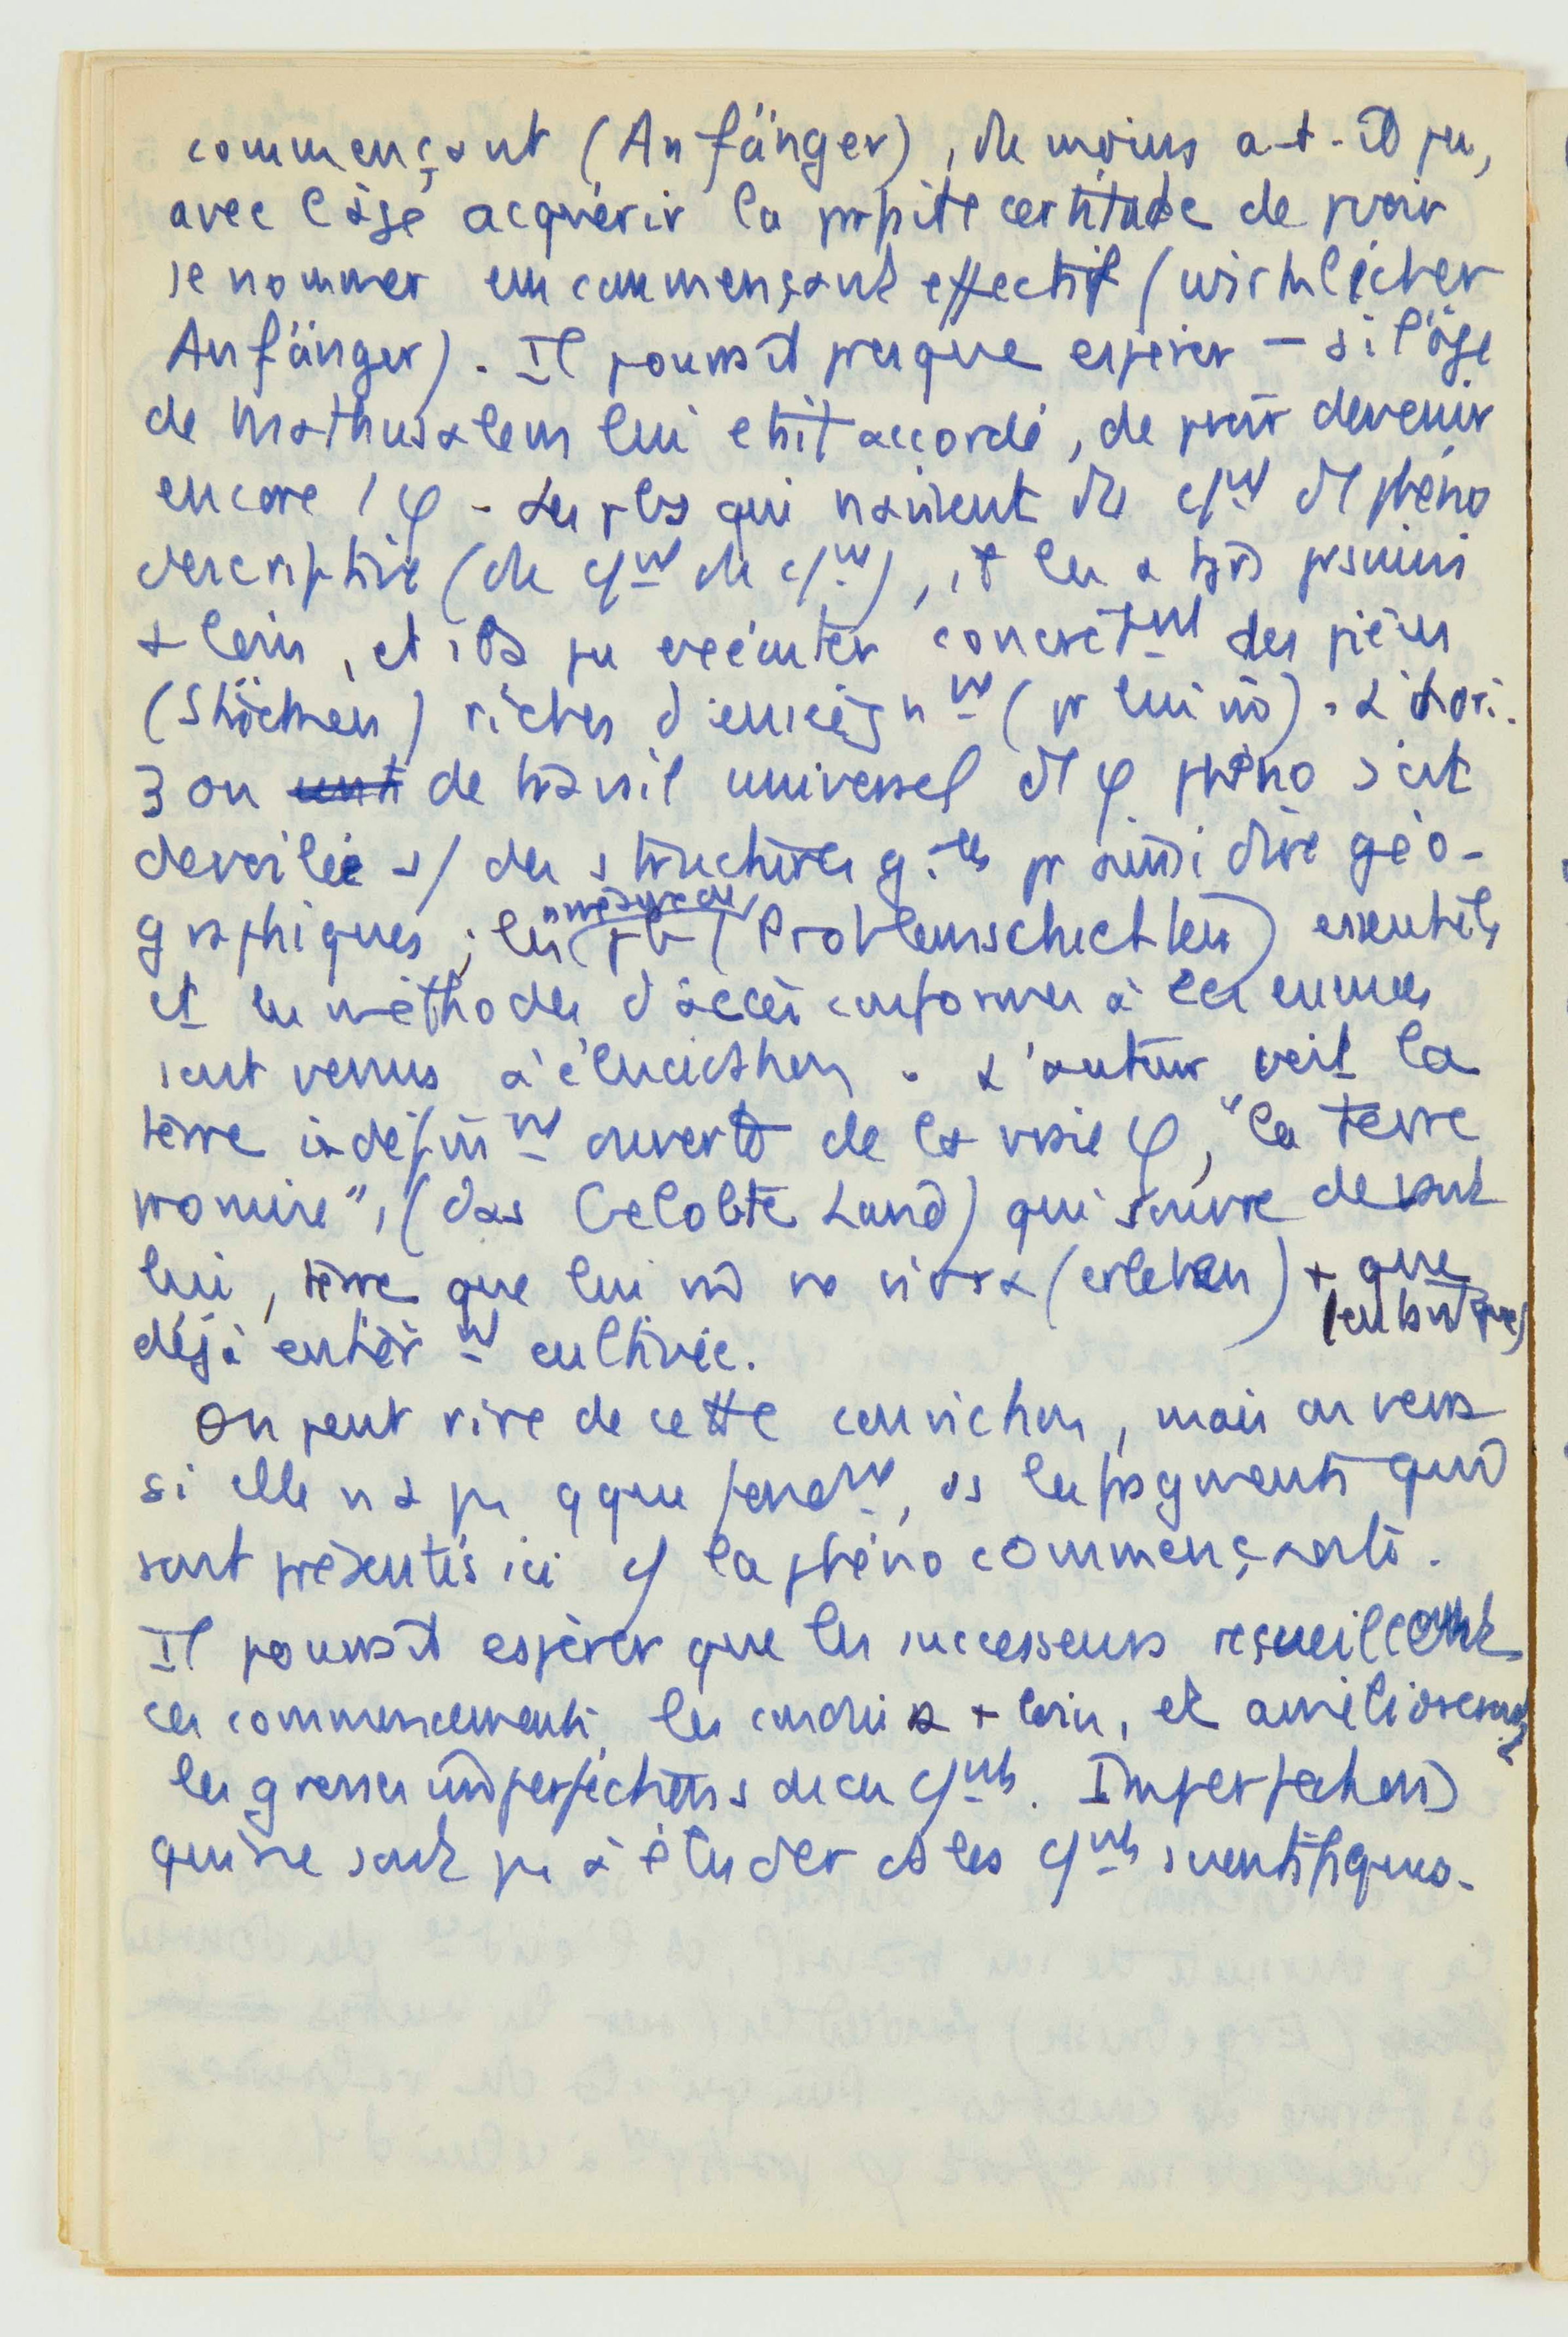 commençant (Anfänger), du moins a-t-il pu,
avec l'âge acquérir la pfaite certitude de pvoir
se nommer un commençant effectif (wirklicher
Anfänger). Il pourrait presque espérer – si l'âge
de Mathusalem lui était accordé, de pvoir devenir
encore 1 φ. Les pbs qui naissent du cʸᵗ dl phéno
descriptive (du cᵐᵗ du cᵐᵗ), il les a tjrs poursuivis
+ loin, et il a pu exécuter concrètᵐᵗ des pièces
(Stücken) riches d'enseignᵐᵗ (pr lui mê). L'hori-
zon de travail universel dl φ phéno s'est
dévoilé s/ des structures g.ˡᵉˢ pr ainsi dire géo-
graphiques ; les pb (Problemschichten) essentiels
et les méthodes d'accès conformes à leur
sont venus à élucidation. L'auteur voit la
terre indéfinᵐᵗ ouverte de la vraie φ, "la terre
promise", (das Gelobte Land) qui s'ouvre devant
lui, terre que lui mê ne vivra (erleben) + que
déjà entièrᵐᵗ cultivée.
On peut rire de cette conviction, mais on verra
si elle n'a pas qque fondᵐᵗ, ds les fragments qui
sont présentés ici cʸ la phéno commençante.
Il pourrait espérer que les successeurs recueilleront
ces commencements, les conduira + loin, et amélioreront
les grosses imperfections de ces cᵐᵗˢ. Imperfections
qui ne sont pas à éluder ds les cᵐᵗˢ scientifiques.